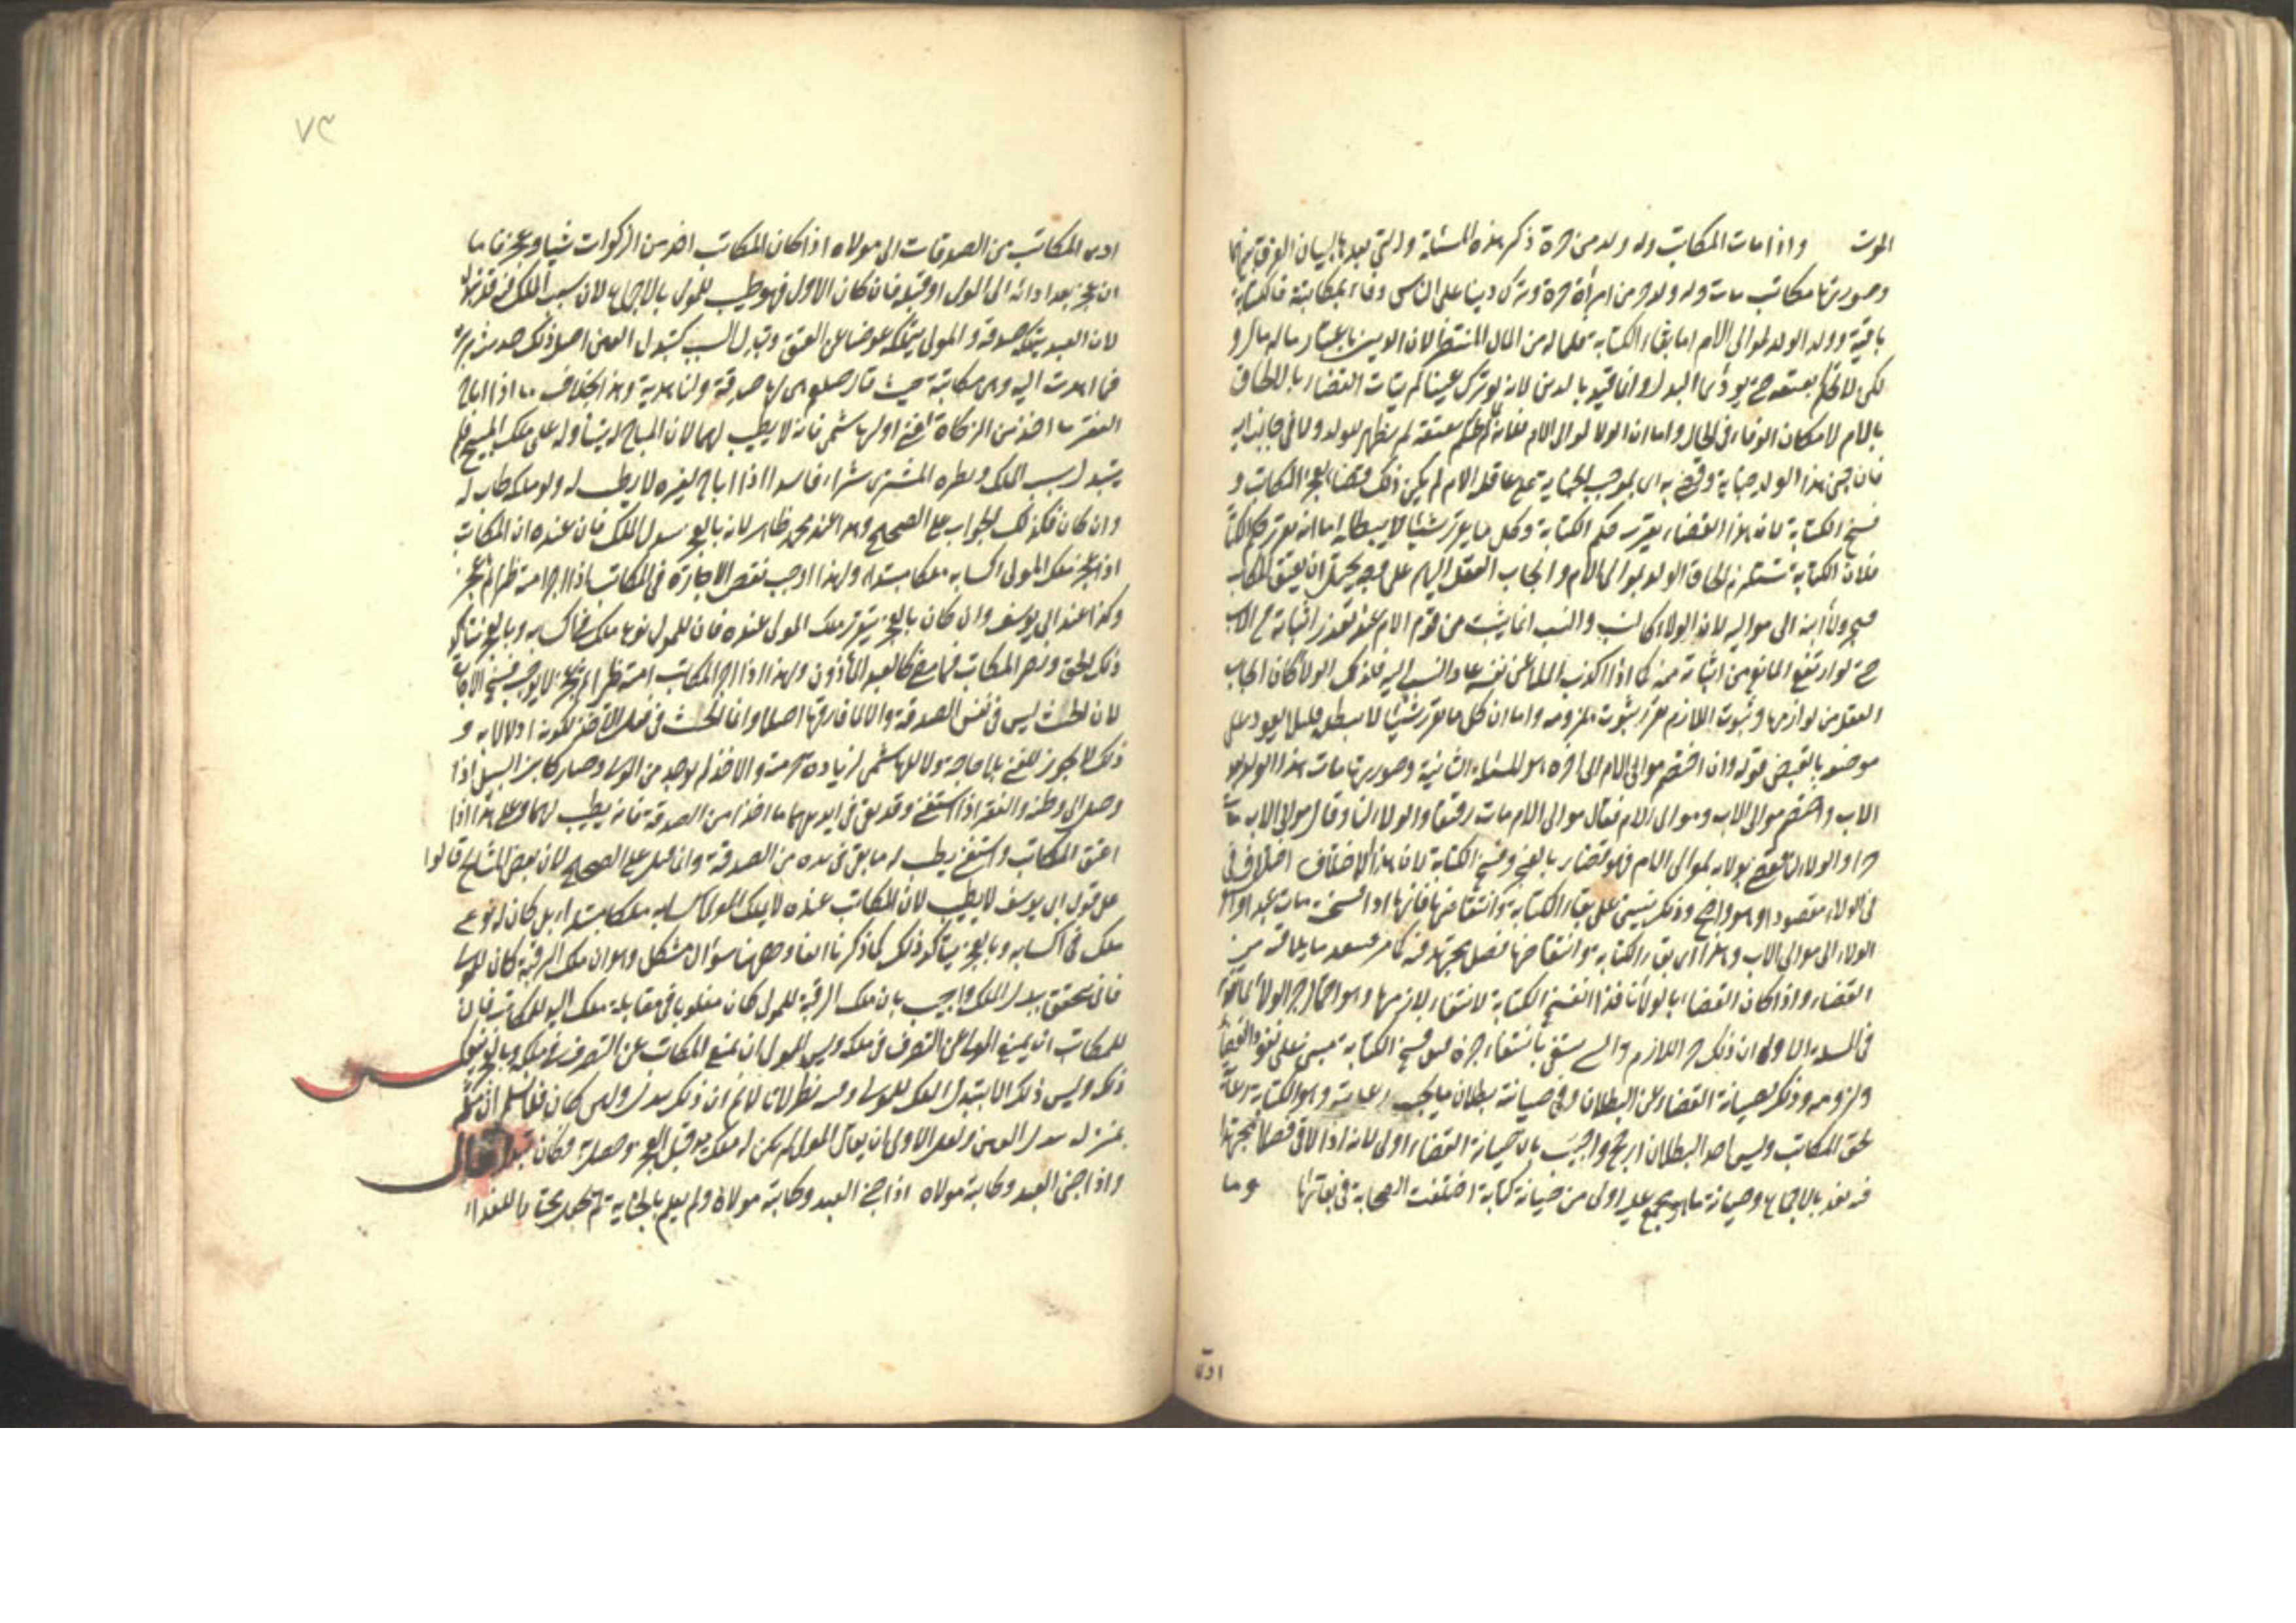 الموت واذا مات المكاتب وله ولد من حرة ذكر هذه المسئلة والتي بعدها لبيان الفرق بينهما
وصورتها مكاتب مات وله ولد من امرأة حرة وترك دينا على الناس وفاء بمكاتبته فالكتابة
باقية وولاء الولد لموالى الام اما بقاء الكتابة فلماله من المال المنتظر لان الدين باعتبار ماله مال و
لكن لا يحكم بعتقه حتى يؤدى البدل وانما قيد بالدين لانه لو ترك عينا لم يتأت القضاء بالالحاق
بالام لامكان الوفاء فى الحال واما ان الولاء لموالى الام فلانه لما لم يحكم بعتقه لم يظهر للولد ولاء فى جانب ابيه
فان جنى هذا الولد جناية وقضى به اى بموجب الجناية على عاقلة الام لم يكن ذلك قضاء بعجز المكاتب و
فسخ الكتابة لان هذا القضاء يقرر حكم الكتابة وكل ما يقرر شيئا لا يبطله اما انه يقرر حكم الكتابة
فلان الكتابة تستلزم الحاق الولد بموالى الام وايجاب العقل عليهم على وجه يحتمل ان يعتق المكاتب
فيجر ولاء ابنه الى مواليه لان الولاء كالنسب والنسب انما يثبت من قوم الام عند تعذر اثباته من الاب
حتى لو ارتفع المانع من اثباته منه كما اذا اكذب الملاعن نفسه عاد النسب اليه فكذلك الولاء فكان ايجاب
العقل من لوازمها وثبوت اللازم يقرر ثبوت ملزومه واما ان كل ما يقرر شيئا لا يبطله فلئلا يعود على
موضوعه بالنقض قوله وان اختصم موالى الام الى اخره هو المسئلة الثانية وصورتها مات هذا الولد بعد
الاب واختصم موالى الاب وموالى الام فقال موالى الام مات رقيقا والولاء لنا وقال موالى الاب مات
حرا والولاء لنا فقضى بولائه لموالى الام فهو قضاء بالعجز وفسخ الكتابة لان هذا الاختلاف اختلاف فى
فى الولاء مقصودا وهو واضح وذلك يبتنى على بقاء الكتابة وانتقاضها فانها اذا انفسخت مات عبدا واستقر
الولاء الى موالى الاب وهذا اى بقاء الكتابة وانتقاضها فصل مجتهد فيه كما مر فينفذ ما يلاقيه من
القضاء واذا كان القضاء بالولاء نافذا انفسخ الكتابة لانتفاء لازمها وهو احتمال جر الولاء
فى المسئلة الاولى ان ذلك جزء اللازم والشئ ينتفى بانتفاء جزئه
ولزومه وذلك لصيانة القضاء عن البطلان وفى صيانته بطلان ما يجب رعايته وهو الكتابة رعاية
لحق المكاتب وليس احد البطلان ارجح واجيب بان صيانة القضاء اولى لانه اذا لاقى فصلا مجتهدا
فيه نفذ بالاجماع وصيانة ما هو مجمع عليه اولى من صيانة كتابة اختلفت الصحابة فى بقائها وما
ادى
٧٢
ادى المكاتب من الصدقات الى مولاه اذا كان المكاتب اخذ من الزكوات شيئا وعجز فاما
ان عجز بعد ادائه الى المولى او قبله فان كان الاول فهو طيب للمولى بالاجماع لان سبب الملك فيه قد تبدل
لان العبد يتملكه صدقة والمولى يتملكه عوضا عن العتق وتبدل السبب كتبدل العين اصل ذلك حديث بريرة
فيما اهدت اليه وهى مكاتبة حيث قال صلعم هى لها صدقة ولنا هدية وهذا بخلاف ما اذا اباح
الفقير ما اخذ من الزكاة لغنى او لهاشمى فانه لا يطيب لهما لان المباح له يتناوله على ملك المبيح فلم
يتبدل سبب الملك ونظيره المشترى شراء فاسدا اذا اباح لغيره لا يطيب له ولو ملكه طاب له
وان كان فكذلك الجواب على الصحيح وهذا عند محمد ظاهر لانه بالعجز يتبدل الملك فان عنده ان المكاتب
اذا عجز ملك المولى اكسابه ملكا مبتدأ ولهذا اوجب نقض الاجارة فى المكاتب اذا اجر امته ظئرا ثم عجز
وكذا عند ابى يوسف وان كان بالعجز يتقرر ملك المولى عنده فان للمولى نوع ملك فى اكسابه وبالعجز يتأكد
ذلك الحق ويصير المكاتب فيما مضى كالعبد المأذون ولهذا اذا اجر المكاتب امته ظئرا ثم عجز لا يوجب فسخ الاجارة
لان الخبث ليس فى نفس الصدقة والا لما فارقها اصلا وانما الخبث فى فعل الاخذ لكونه اذلالا به و
ذلك لا يجوز للغنى بلا حاجة ولا للهاشمى لزيادة حرمته والاخذ لم يوجد من المولى وصار كابن السبيل اذا
وصل الى وطنه والفقير اذا استغنى وقد بقى فى ايديهما ما اخذا من الصدقة فانه يطيب لهما وعلى هذا اذا
اعتق المكاتب واستغنى يطيب له ما بقى فى يده من الصدقة وانما قيد على الصحيح لان بعض المشايخ قالوا
على قول ابى يوسف لا يطيب لان المكاتب عنده لا يملك المولى اكسابه ملكا مبتدأ بل كان له نوع
ملك فى اكسابه وبالعجز يتأكد ذلك كما ذكرنا انفا وههنا سؤال مشكل وهو ان ملك الرقبة كان للمولى
فانى يتحقق تبدل الملك واجيب بان ملك الرقبة للمولى كان مغلوبا فى مقابلة ملك اليد للمكاتب فان
للمكاتب ان يمنع المولى عن التصرف فى ملكه وليس للمولى ان يمنع المكاتب عن التصرف فى ملكه وبالعجز ينعكس
ذلك وليس ذلك الا بتبدل الملك للمولى وفيه نظر لانا لا نم ان ذلك تبدل ولئن كان فلا نسلم ان مثله
بمنزلة تبدل العين ولعل الاولى ان يقال المولى لم يكن له ملك يد قبل العجز وحصل به فكان تبدلا قال
واذا جنى العبد وكاتبه مولاه اذا جنى العبد وكاتبه مولاه ولم يعلم بالجناية لم يجعل مختارا للفداء